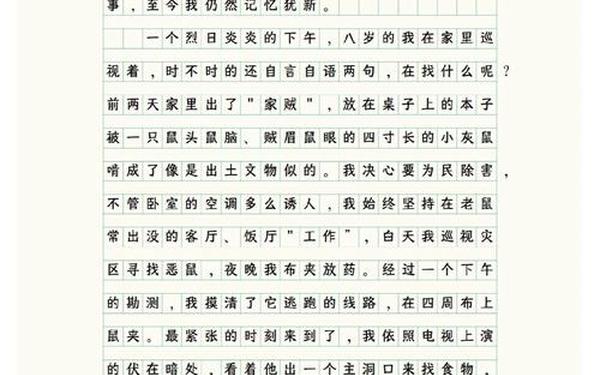 事，至今我仍然记忆犹新。
一个烈日炎炎的下午，八岁的我在家里巡
视着，时不时的还自言自语两句，在找什么呢？
前两天家里出了"家贼"，放在桌子上的本子
被一只鼠头鼠脑、贼眉鼠眼的四寸长的小灰鼠
啃成了像是出土文物似的。我决心要为民除害，
不管卧室的空调多么诱人，我始终坚持在老鼠
常出没的客厅、饭厅"工作"，白天我巡视灾
区寻找恶鼠，夜晚我布夹放药。经过一个下午
的勘测，我摸清了它逃跑的线路，在四周布上
鼠夹。最紧张的时刻来到了，我依照电视上演
的伏在暗处，看着他出一个主洞口来找食物，